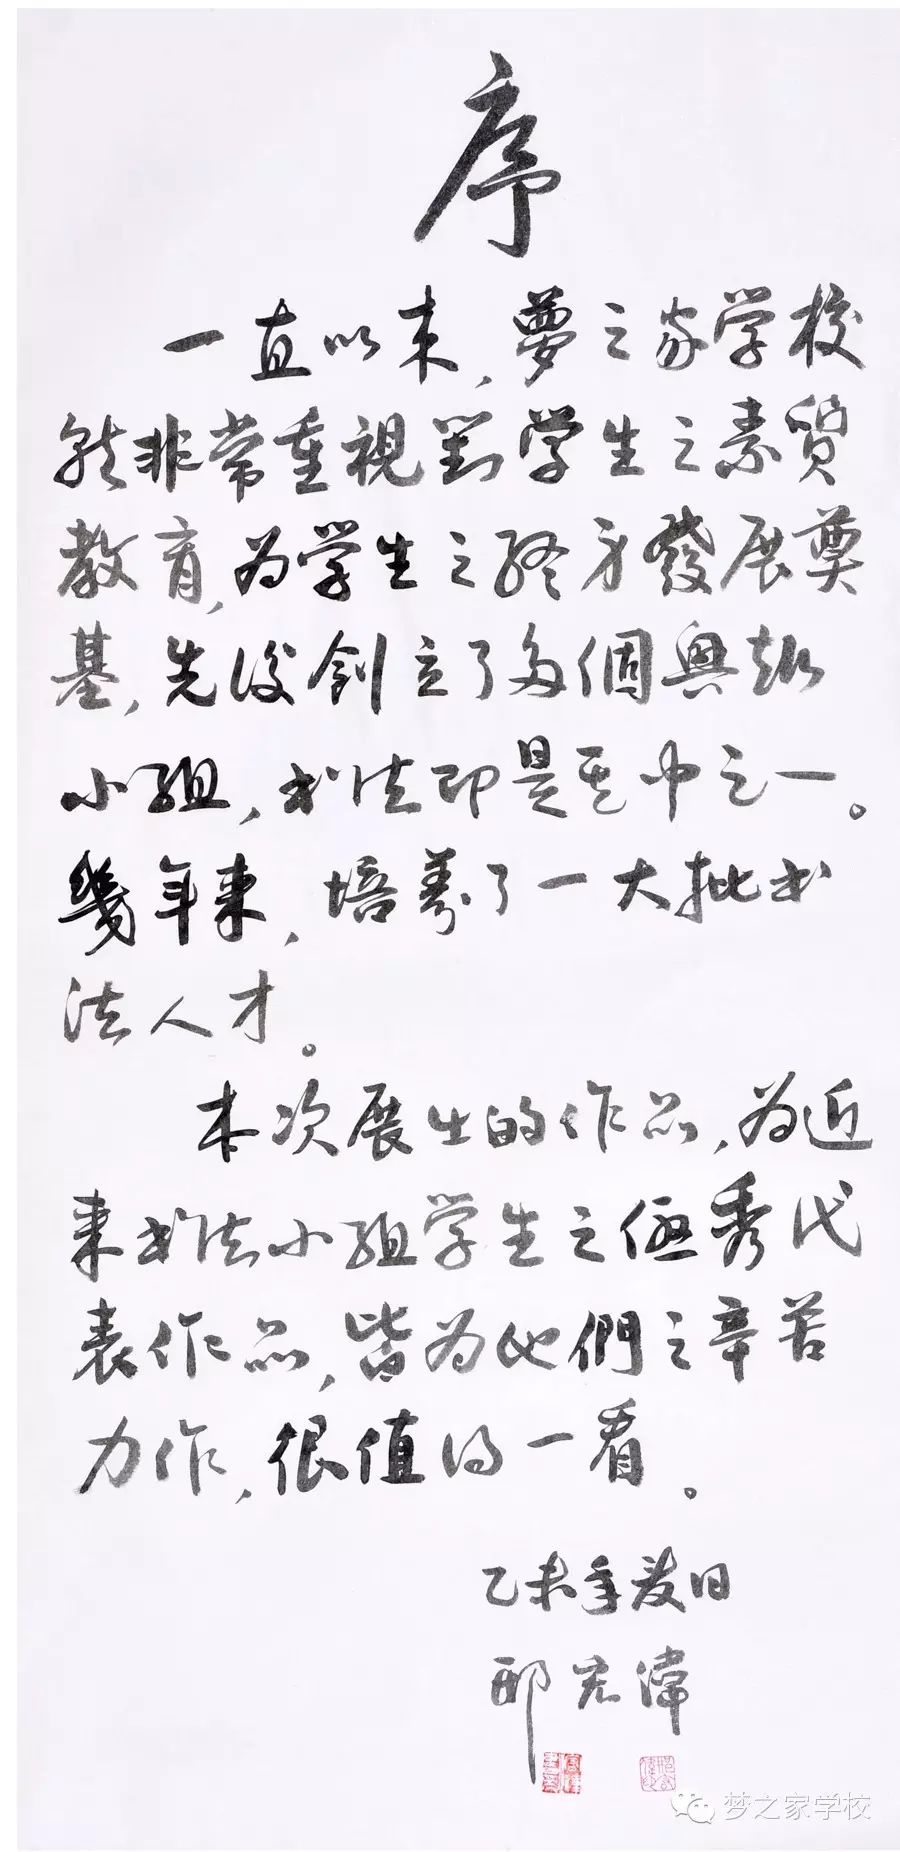 序
一直以来,夢之家学校
就非常重視對学生之素質
教育,为学生之終身發展奠
基,先後創立了多個興趣
小組,书法即是其中之一。
幾年来,培養了一大批书
法人才。
本次展出的作品,为近
来书法小組学生之優秀代
表作品,皆为他們之辛苦
力作,很值得一看。
乙未年夏日
邢宏偉
梦之家学校